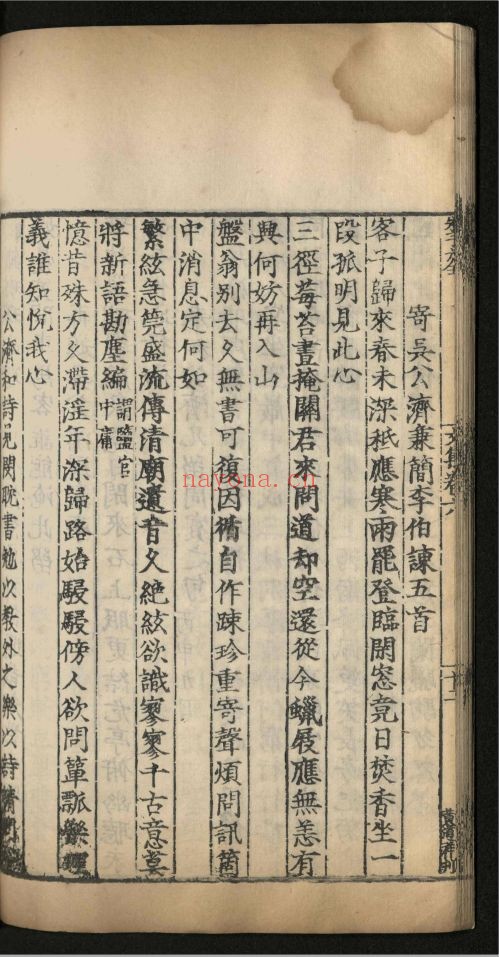 寄吳公濟兼簡李伯諫五首
客子歸來春未深秪應寒雨罷登臨閉窓竟日焚香坐一
段孤明見此心
三徑莓苔晝掩關君來問道却空還從今蠟屐應無恙有
興何妨再入山
盤翁別去久無書可復因循自作踈珍重寄聲煩問訊箇
中消息定何如
繁絃急筦盛流傳清廟遺音久絶絃欲識寥寥千古意莫
將新語勘塵編謂鹽官中庸
憶昔殊方久滯淫年深歸路始駸駸傍人欲問簞瓢樂理
義誰知悅我心
公濟和詩見閔耽書勉以敎外之樂以詩請問
文集卷二
十二
navona.cn